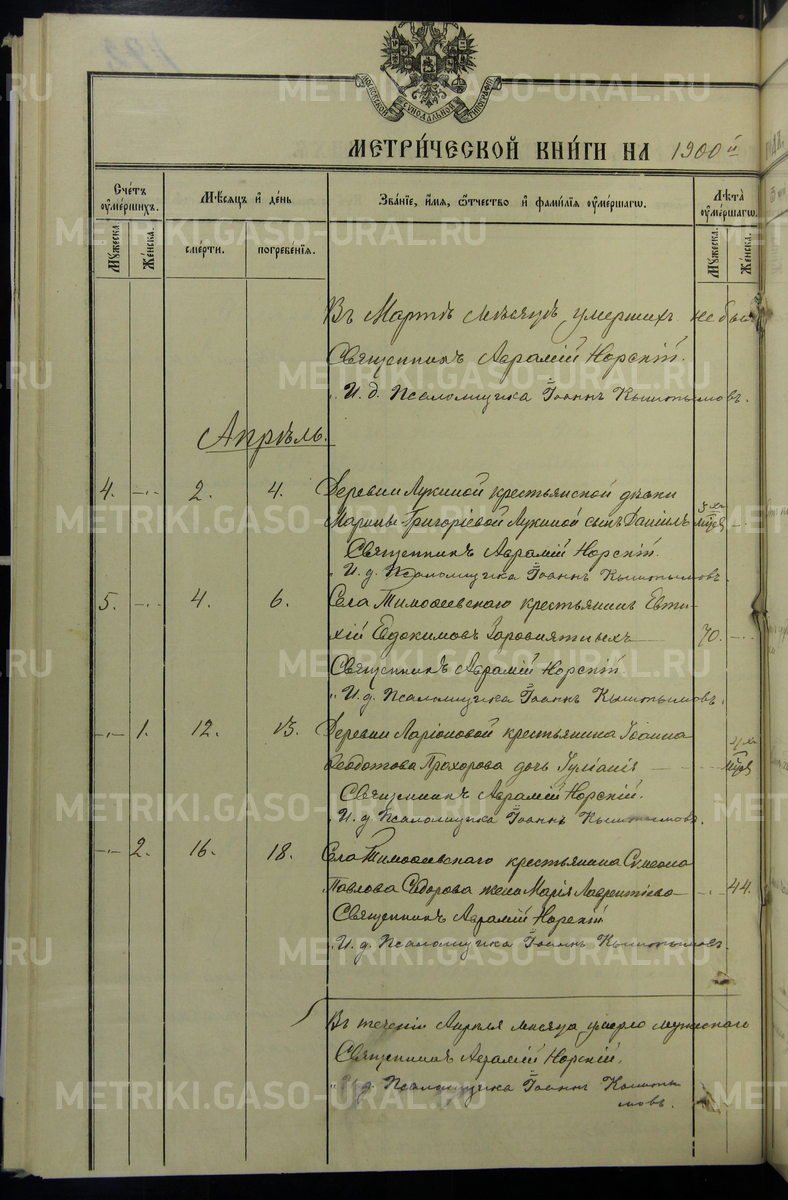 МОСКОВСКОЙ СѴНОДАЛЬНОЙ ТИПОГРАФІИ
МЕТРИ́ЧЕСКОЙ КНИ́ГИ НА 1900й
Сче́тъ оуме́ршихъ.
Мꙋжеска.
Же́нска.
Мѣсяцъ и день
сме́рти.
погребе́нїя.
Зва́нїе, и́мя, ѻ҆́тчество и҆ фами́лїя оуме́ршагѡ.
Лѣ́та оуме́ршагѡ.
Мꙋжеска.
Же́нска.
Въ Мартѣ мѣсяцѣ умершихъ не бы
Священникъ Аврамій Норскій.
И. д. Псаломщика Іоаннъ Кыштымовъ.
Апрѣль.
4. —·— 2. 4. Деревни Лукиной крестьянской дѣвки
Марины Григоріевой Лукиной сынъ Даніилъ
Священникъ Аврамій Норскій.
И. д. Псаломщика Іоаннъ Кыштымовъ.
5. —·— 4. 6. Села Тимоѳеевскаго крестьянинъ Евти-
хій Евдокимовъ 70. —·—
Священникъ Аврамій Норскій
И. д. Псаломщика Іоаннъ Кыштымовъ.
—·— 1. 12. 15. Деревни Ларіоновой крестьянина Іоанна
Ѳеодотова Прохорова дочь Іуліанія
Священникъ Аврамій Норскій.
И. д. Псаломщика Іоаннъ Кыштымовъ.
—·— 2. 16. 18. Села Тимоѳеевскаго крестьянина Сумеона
Павлова Сидорова жена Марія Лаврентіева —·— 44.
Священникъ Аврамій Норскій
И. д. Псаломщика Іоаннъ Кыштымовъ.
Въ теченіи Апрѣля мѣсяца умерло мужескаго
Священникъ Аврамій Норскій.
И. д. Псаломщика Іоаннъ Кышты-
мовъ.
METRIKI.GASO-URAL.RU